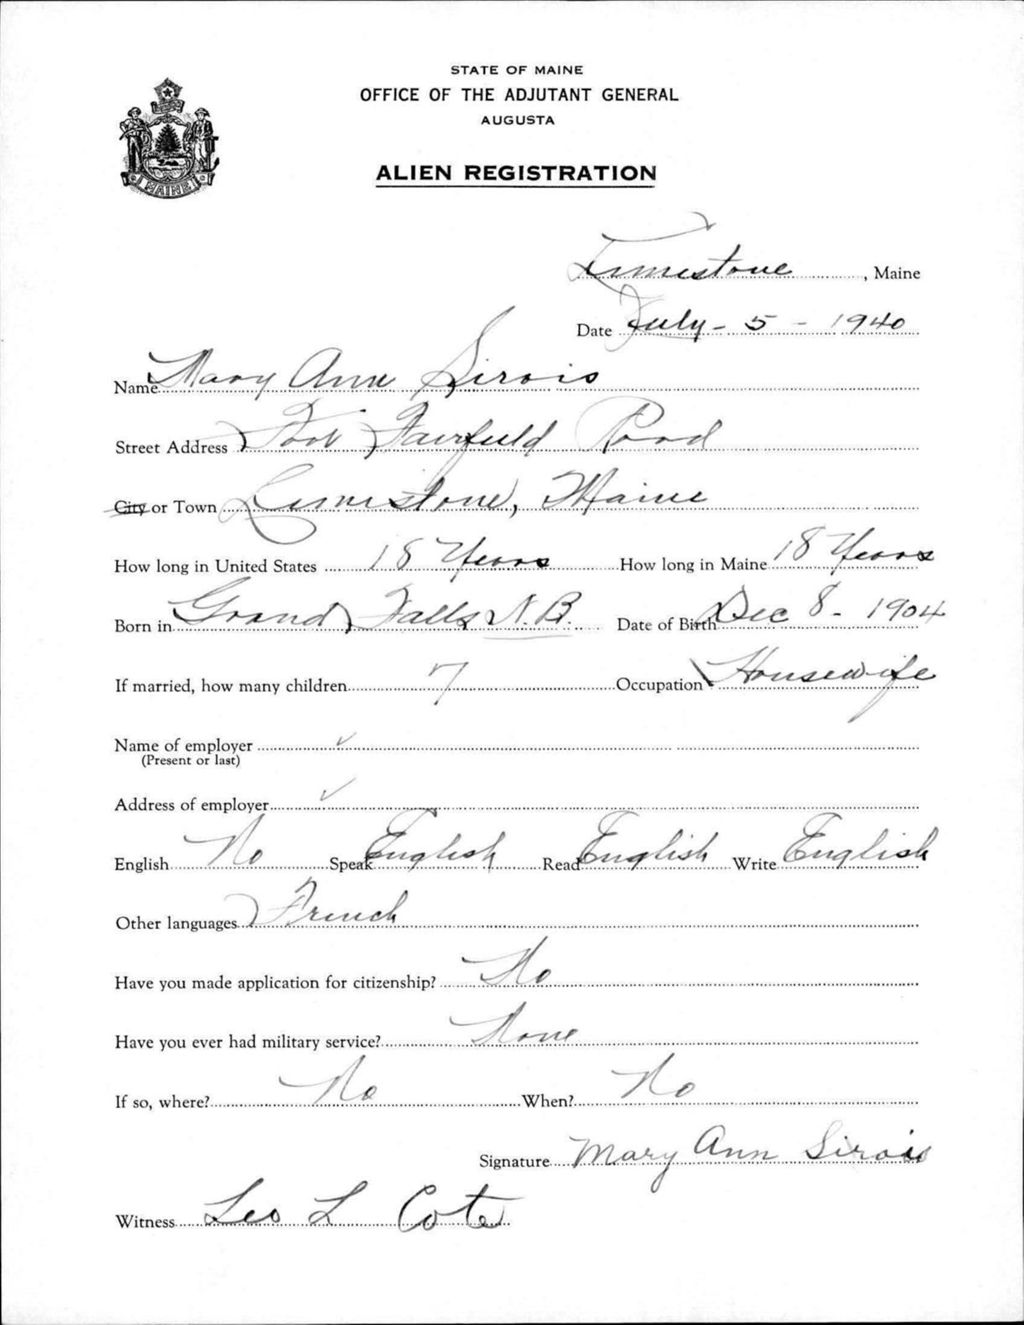 STATE OF MAINE
OFFICE OF THE ADJUTANT GENERAL
AUGUSTA
ALIEN REGISTRATION
MAINE
Limestone, Maine
Date July - 5 - 1940
Name Mary Ann Sirois
Street Address Fort Fairfield Road
City or Town Limestone, Maine
How long in United States 18 Years How long in Maine 18 Years
Born in Grand Falls N.B. Date of Birth Dec 8 - 1904
If married, how many children 7 Occupation Housewife
Name of employer ✓
(Present or last)
Address of employer ✓
English No Speak English Read English Write English
Other languages French
Have you made application for citizenship? No
Have you ever had military service? None
If so, where? No When? No
Signature Mary Ann Sirois
Witness Leo L Cote